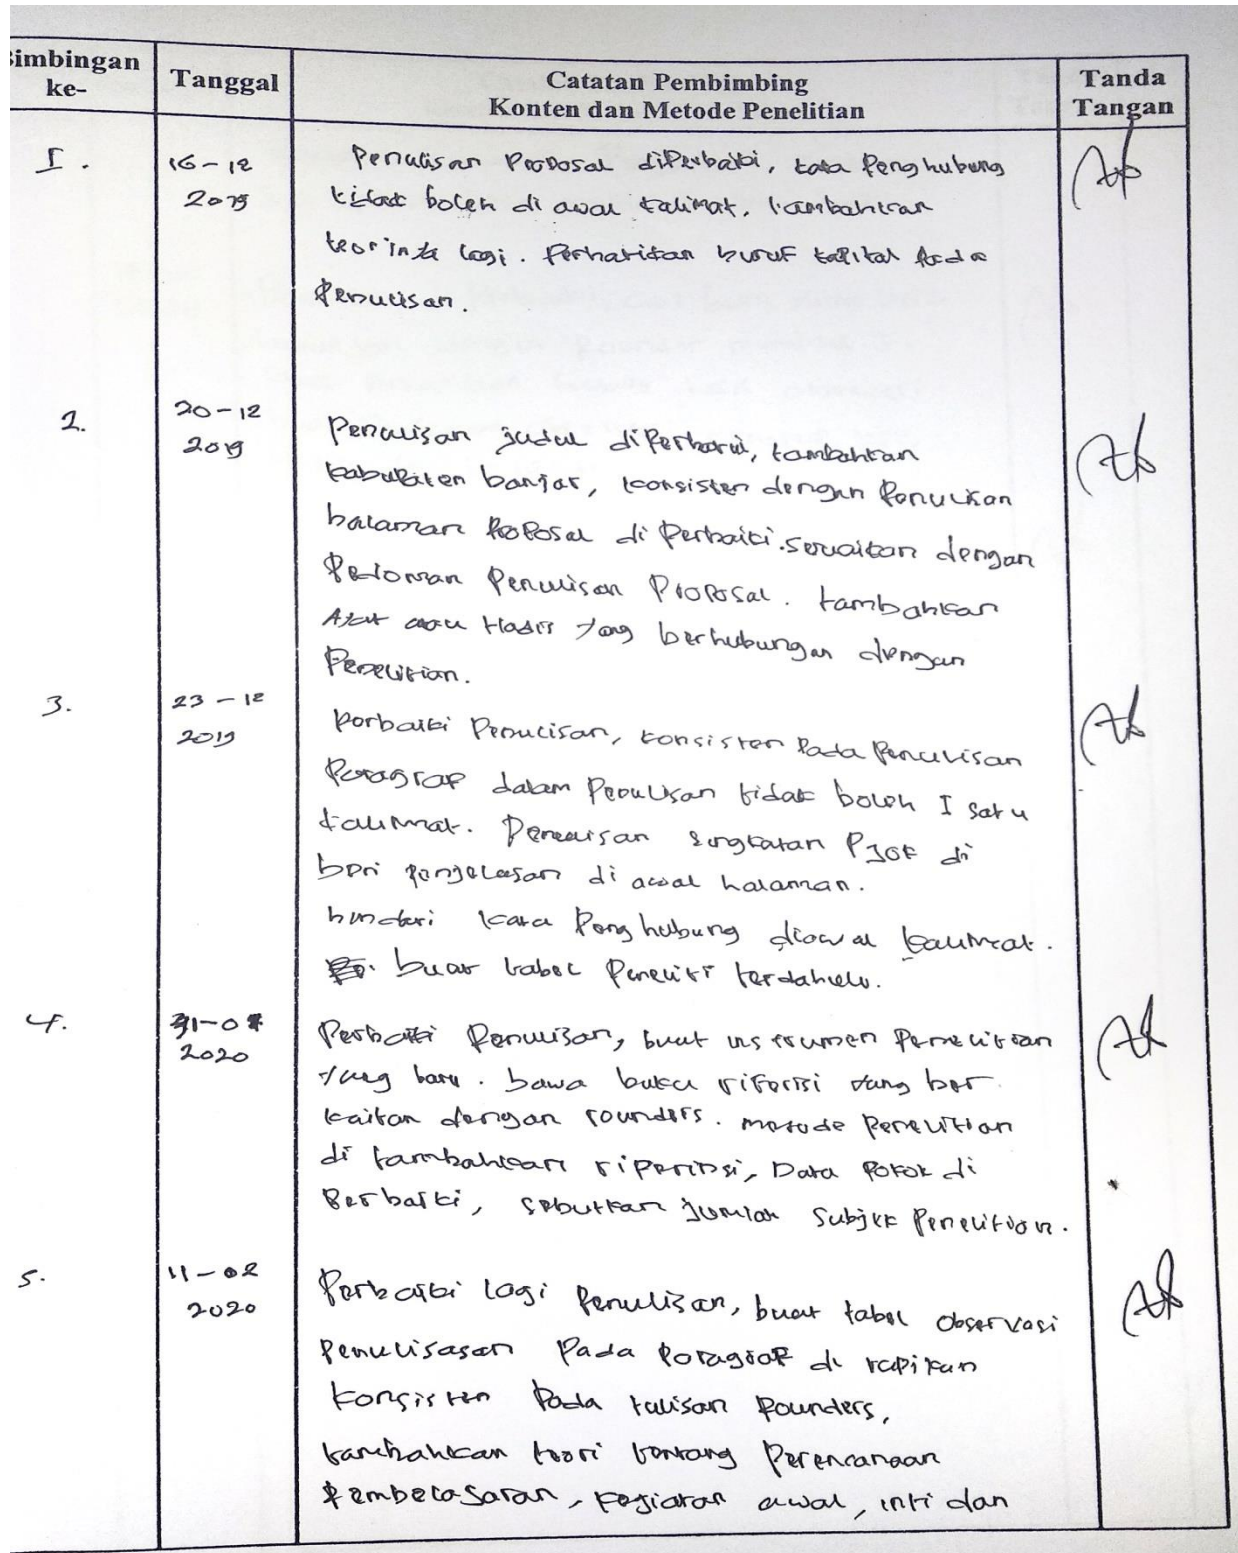 Bimbingan ke- Tanggal Catatan Pembimbing Konten dan Metode Penelitian Tanda Tangan
I. 16-12 2019 Penulisan Proposal diPerbaiki, kata Penghubung
tidak boleh di awal kalimat, tambahkan
teorinya lagi. Perhatikan huruf kapital Pada
Penulisan.
2. 20-12 2019 Penulisan judul diPerbarui, tambahkan
kabuPaten banjar, konsisten dengan Penulisan
halaman ProPosal di Perbaiki. sesuaikan dengan
Pedoman Penulisan ProPosal. tambahkan
Ayat atau Hadis yang berhubungan dengan
Penelitian.
3. 23-12 2019 Perbaiki Penulisan, konsisten Pada Penulisan
ParagraP dalam Penulisan tidak boleh I satu
kalimat. Penulisan singkatan PJOK di
beri penjelasan di awal halaman.
hindari kata Penghubung diawal kalimat.
buat tabel Peneliti terdahulu.
4. 31-01 2020 Perbaiki Penulisan, buat instrumen Penelitian
yang baru. bawa buku riferisi yang ber
kaitan dengan rounders. metode Penelitian
di tambahkan riperinsi, Data Pokok di
Perbaiki, sebutkan jumlah Subjek Penelitian.
5. 11-02 2020 Perbaiki lagi Penulisan, buat tabel observasi
Penulisasan Pada ParagraP di rapikan
konsisten Pada tulisan Rounders,
tambahkan teori tentang Perencanaan
Pembelajaran, kegiatan awal, inti dan